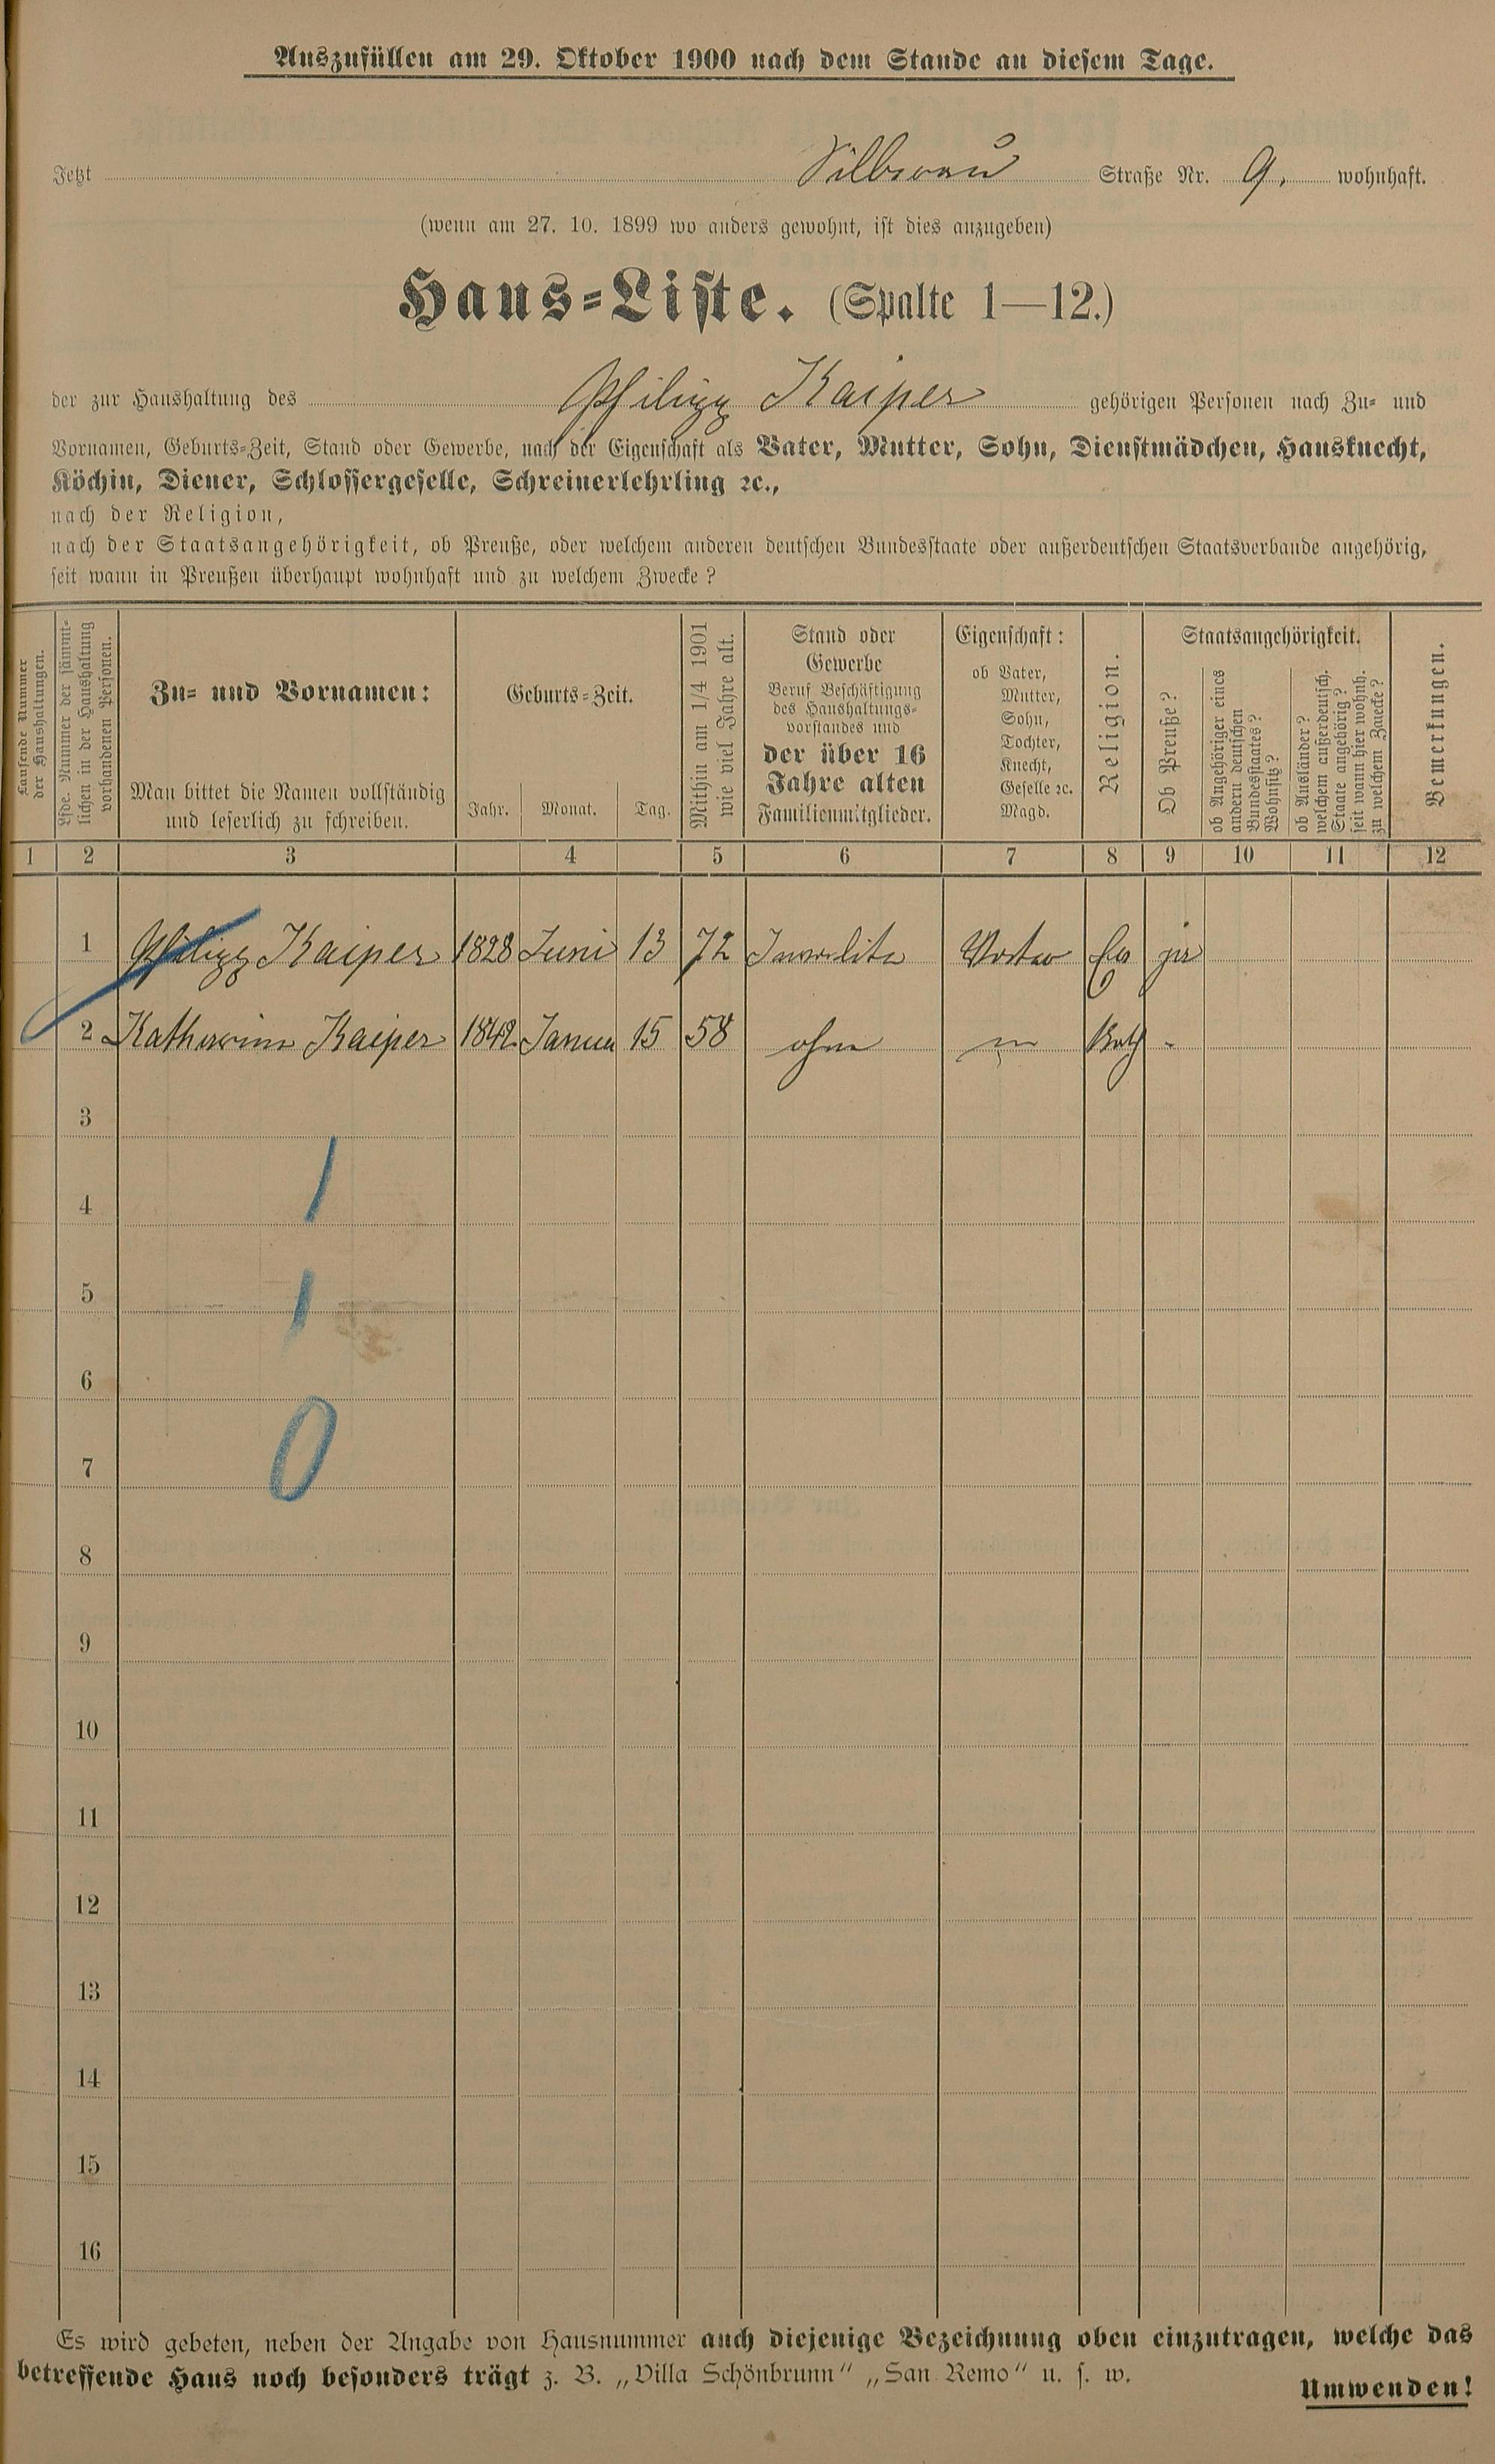 Auszufüllen am 29. Oktober 1900 nach dem Stande an diesem Tage.
Jetzt Silberau Straße Nr. 9. wohnhaft.
(wenn am 27. 10. 1899 wo anders gewohnt, ist dies anzugeben)
Haus=Liste. (Spalte 1—12.)
der zur Haushaltung des Philipp Kaiper gehörigen Personen nach Zu= und
Vornamen, Geburts=Zeit, Stand oder Gewerbe, nach der Eigenschaft als Vater, Mutter, Sohn, Dienstmädchen, Hausknecht,
Köchin, Diener, Schlossergeselle, Schreinerlehrling ꝛc.,
nach der Religion,
nach der Staatsangehörigkeit, ob Preuße, oder welchem anderen deutschen Bundesstaate oder außerdeutschen Staatsverbande angehörig,
seit wann in Preußen überhaupt wohnhaft und zu welchem Zwecke?
Laufende Nummer
der Haushaltungen.
Lfde. Nummer der sämmt-
lichen in der Haushaltung
vorhandenen Personen.
Zu= und Vornamen:
Man bittet die Namen vollständig
und leserlich zu schreiben.
Geburts=Zeit.
Jahr. Monat. Tag.
Mithin am 1/4 1901
wie viel Jahre alt.
Stand oder
Gewerbe
Beruf Beschäftigung
des Haushaltungs-
vorstandes und
der über 16
Jahre alten
Familienmitglieder.
Eigenschaft:
ob Vater,
Mutter,
Sohn,
Tochter,
Knecht,
Geselle ꝛc.
Magd.
Religion.
Staatsangehörigkeit.
Ob Preuße?
ob Angehöriger eines
andern deutschen
Bundesstaates?
Wohnsitz?
ob Ausländer?
welchem außerdeutsch.
Staate angehörig?
seit wann hier wohnh.
zu welchem Zwecke?
Bemerkungen.
1 2 3 4 5 6 7 8 9 10 11 12
1 Philipp Kaiper 1828 Juni 13 72 Invalide Vater Ev ja
2 Katharina Kaiper 1842 Januar 15 58 ohne Kath -
3
4 1
5 1
6
7 0
8
9
10
11
12
13
14
15
16
Es wird gebeten, neben der Angabe von Hausnummer auch diejenige Bezeichnung oben einzutragen, welche das
betreffende Haus noch besonders trägt z. B. „Villa Schönbrunn“ „San Remo“ u. s. w.
Umwenden!